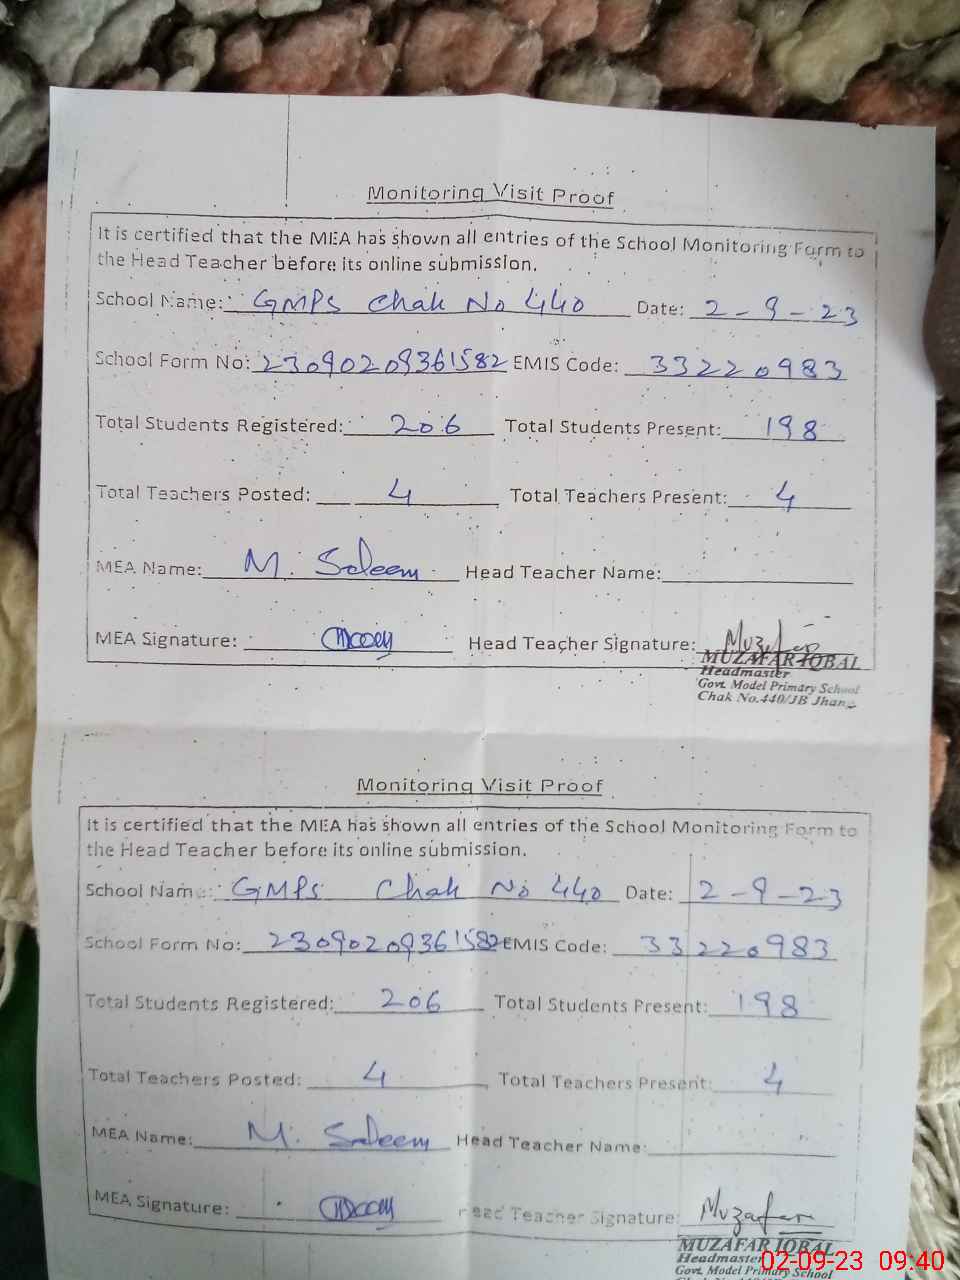 Monitoring Visit Proof
It is certified that the MEA has shown all entries of the School Monitoring Form to
the Head Teacher before its online submission.
School Name: GMPS Chak No 440 Date: 2-9-23
School Form No: 23090209361582 EMIS Code: 33220983
Total Students Registered: 206 Total Students Present: 198
Total Teachers Posted: 4 Total Teachers Present: 4
MEA Name: M. Saleem Head Teacher Name:
MEA Signature: Head Teacher Signature: Muzafar
MUZAFAR IQBAL
Headmaster
Govt. Model Primary School
Chak No.440/JB Jhang
Monitoring Visit Proof
It is certified that the MEA has shown all entries of the School Monitoring Form to
the Head Teacher before its online submission.
School Name: GMPS Chak No 440 Date: 2-9-23
School Form No: 23090209361582 EMIS Code: 33220983
Total Students Registered: 206 Total Students Present: 198
Total Teachers Posted: 4 Total Teachers Present: 4
MEA Name: M. Saleem Head Teacher Name:
MEA Signature: Head Teacher Signature: Muzafar
MUZAFAR IQBAL
Headmaster
Govt. Model Primary School
02-09-23 09:40